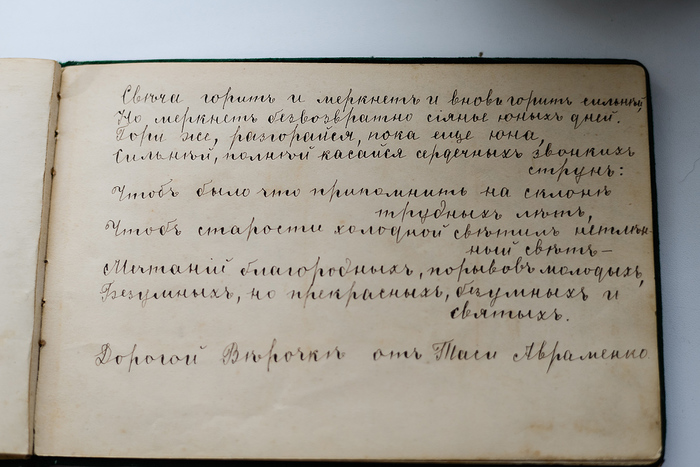 Свѣча горитъ и меркнетъ и вновь горитъ сильнѣй,
Но меркнетъ безвозвратно сіянье юныхъ дней.
Гори же, разгорайся, пока еще юна,
Сильнѣй, полнѣй касайся сердечныхъ звонкихъ
струнъ:
Чтобъ было что припомнить на склонѣ
трудныхъ лѣтъ,
Чтобъ старости холодной свѣтилъ нетлѣн-
ный свѣтъ –
Мечтаній благородныхъ, порывовъ молодыхъ,
Безумныхъ, но прекрасныхъ, безумныхъ и
святыхъ.
Дорогой Вѣрочкѣ отъ Таси Авраменко